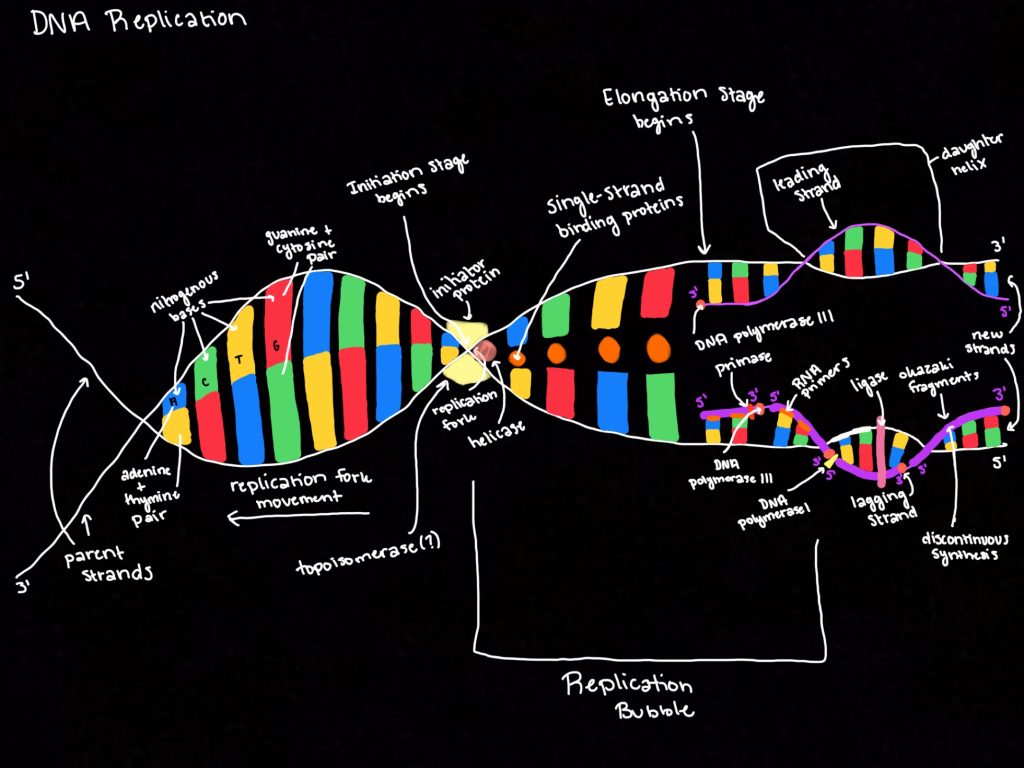 DNA Replication
Elongation Stage
begins
daughter
helix
leading
strand
Initiation Stage
begins
single-strand
binding proteins
guanine +
cytosine
pair
initiator
protein
nitrogenous
bases
5'
3'
3'
5'
A
C
T
G
DNA polymerase III
primase
RNA
primers
ligase
okazaki
fragments
new
strands
replication
fork
helicase
5'
3'
5'
3'
5'
3'
5'
3'
5'
adenine
+
thymine
pair
replication fork
movement
DNA
polymerase III
DNA
polymerase I
lagging
strand
discontinuous
synthesis
topoisomerase(?)
parent
strands
3'
Replication
Bubble